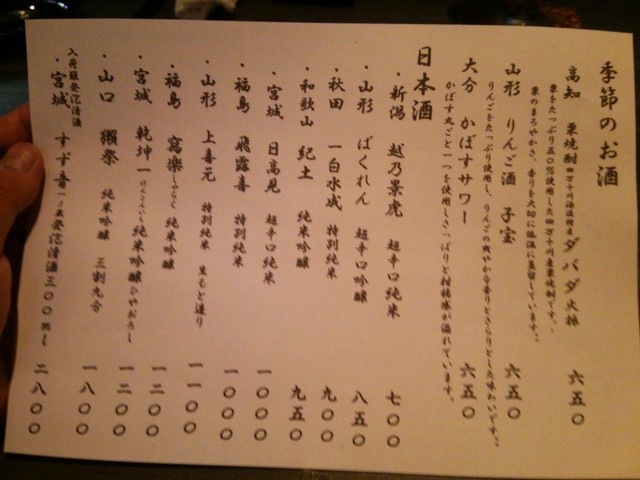 季節のお酒
高知 栗焼酎 四万十川源流特産 ダバダ火振 六五〇
栗をたっぷり五〇%使用した四万十川産栗焼酎です。
栗のまろやかさ、香りを大切に低温に蒸留しています。
山形 りんご酒 子宝 六五〇
りんごをたっぷり使用し、りんごの爽やかな香りとさらりとした味わいです。
大分 かぼすサワー 六五〇
かぼす丸ごと一つを使用しさっぱりと柑橘感が溢れています。
日本酒
・新潟 越乃景虎 超辛口純米 七〇〇
・山形 ばくれん 超辛口吟醸 八五〇
・秋田 一白水成 特別純米 九〇〇
・和歌山 紀土 純米吟醸 九五〇
・宮城 日高見 超辛口純米 一〇〇〇
・福島 飛露喜 特別純米 一〇〇〇
・山形 上喜元 特別純米 生もと造り 一一〇〇
・福島 寫楽 しゃらく 純米吟醸 一二〇〇
・宮城 乾坤一 けんこんいち 純米吟醸ひやおろし 一二〇〇
・山口 獺祭 純米吟醸 三割九分 一八〇〇
入荷限定発泡清酒
・宮城 すず音 一ノ蔵発泡清酒三〇〇ml 二八〇〇